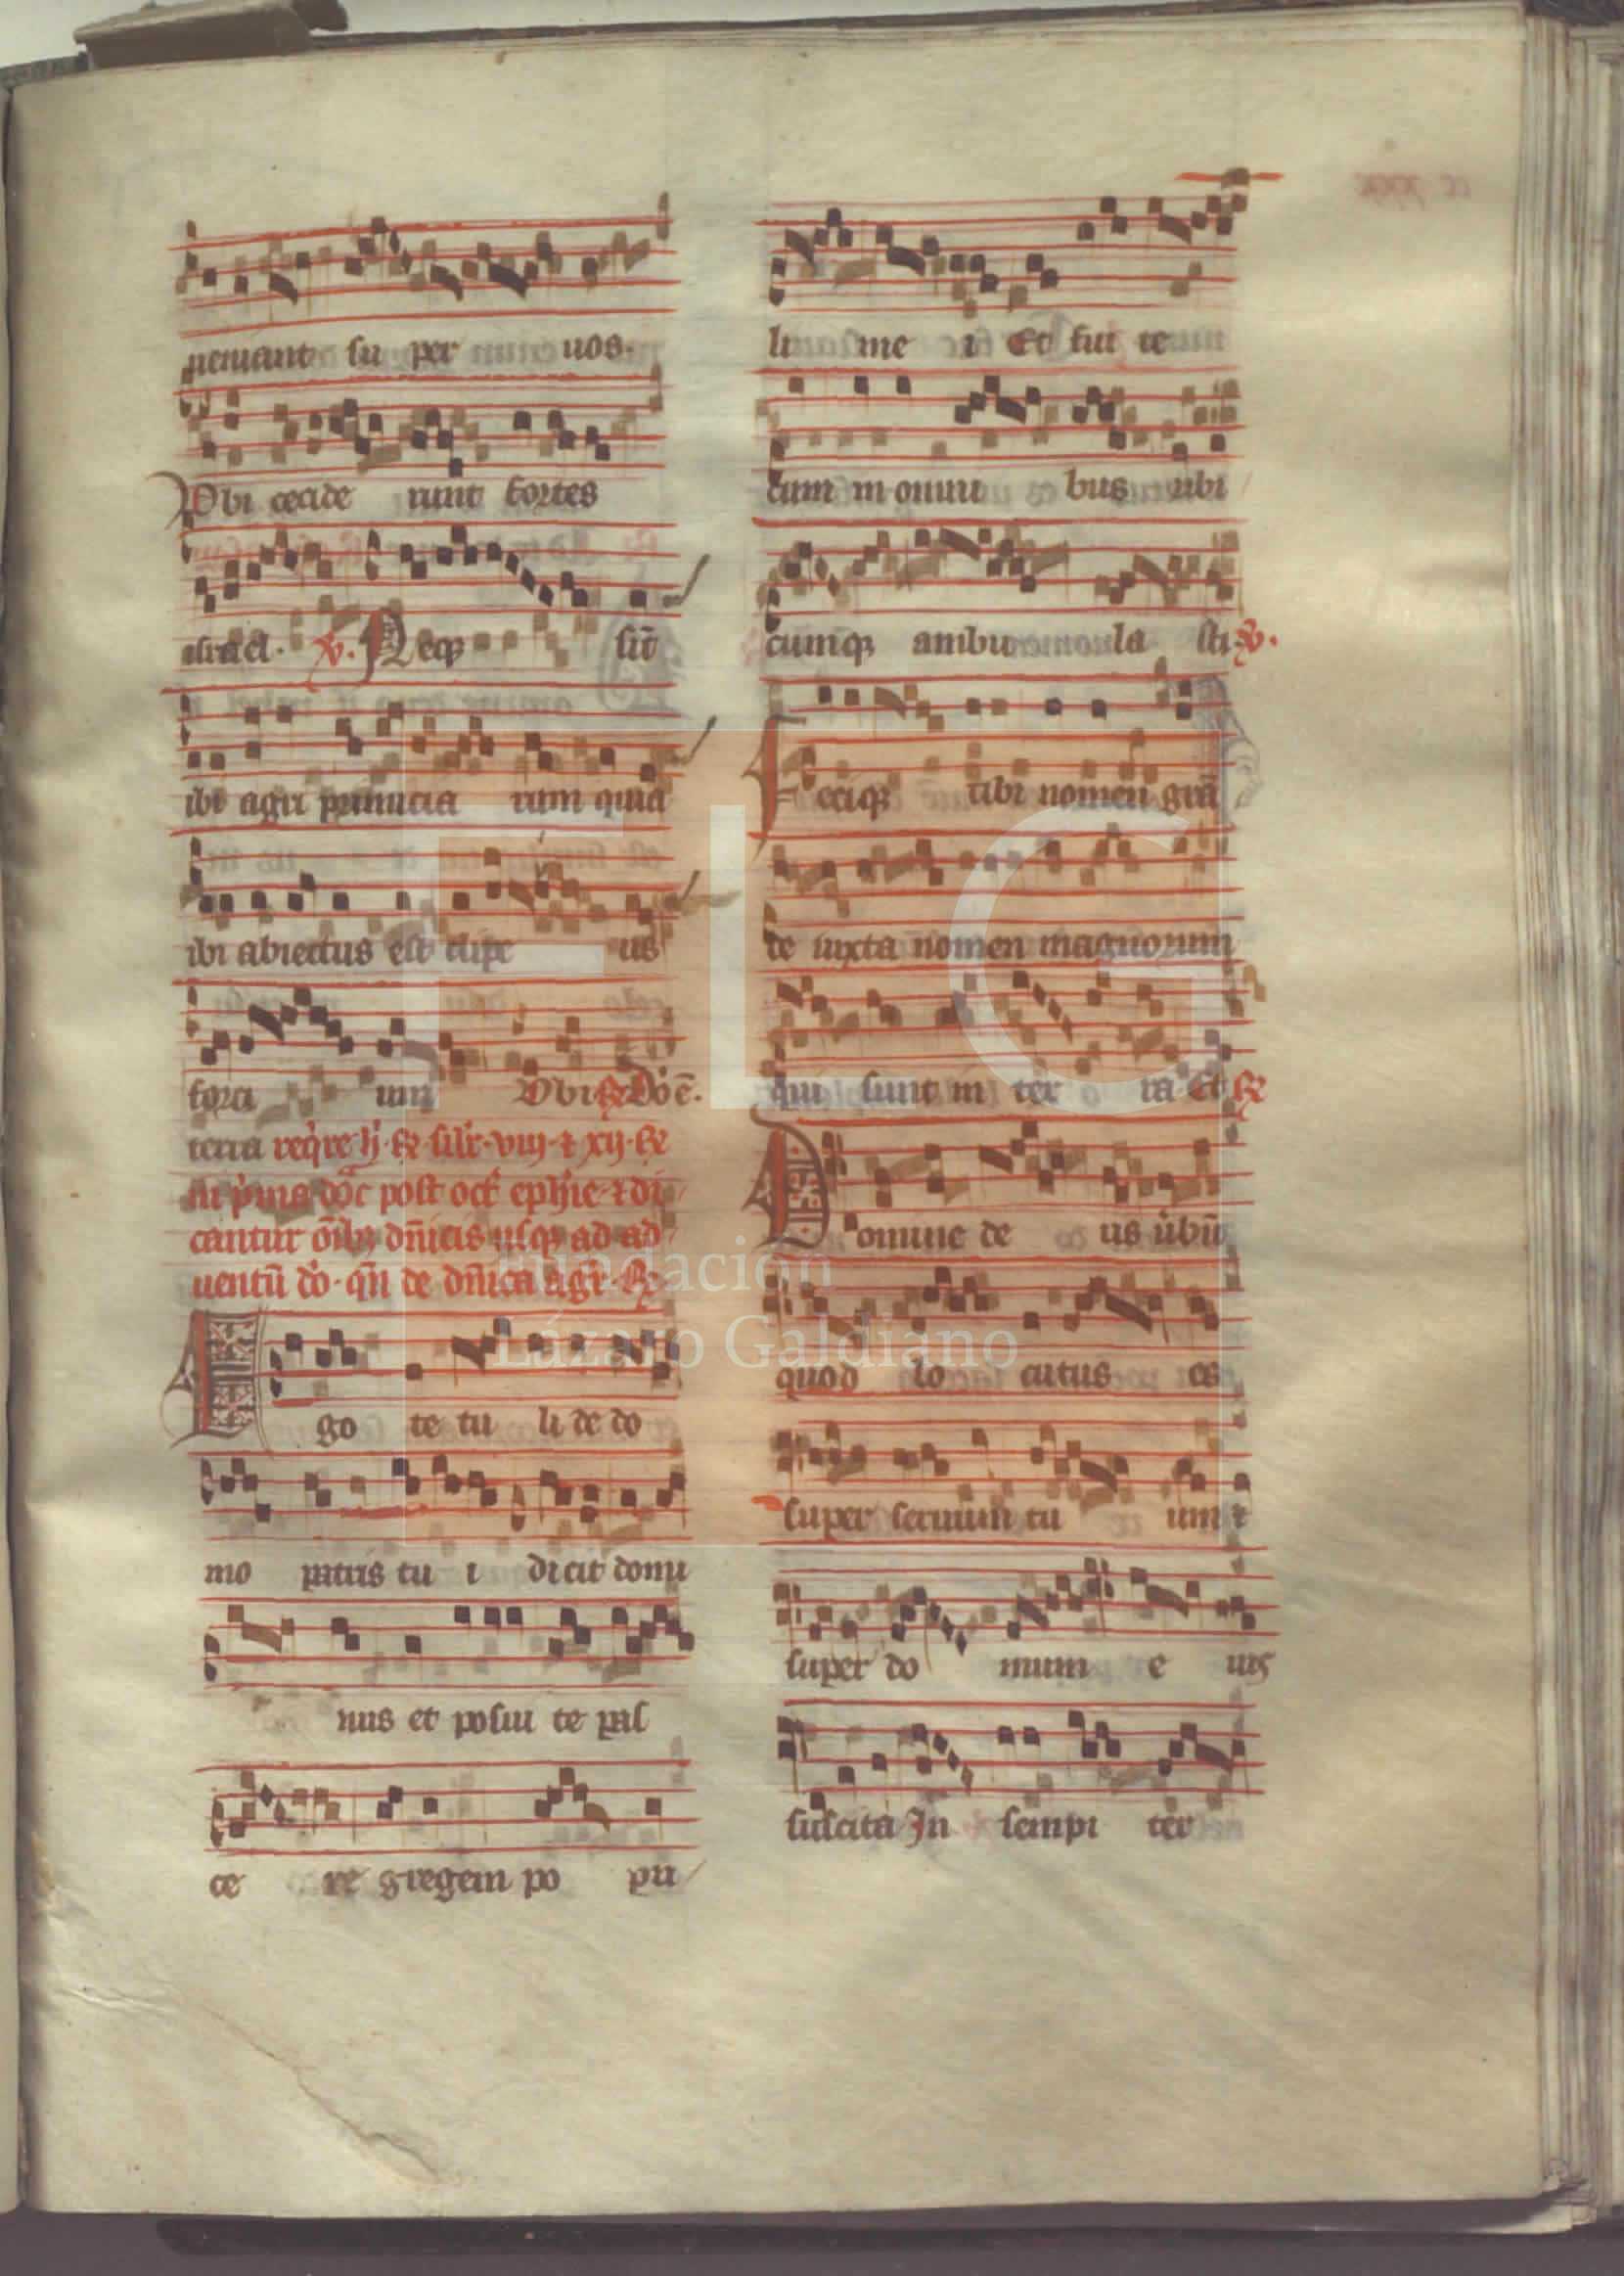 ueniant su per uos.
Ubi cecide runt fortes
israel. ℣. Neqꝫ sit̄
ibi agri primicia rum quia
ibi abiectus est clipe us
forci um Ubi ℟ Dōē.
terra reqͥre ij ℟ silr̄ viij ⁊ xij ℟
in pͥma dōc post oct̄ ephīe ⁊ di
cantur oībꝫ dn̄icis usqꝫ ad ad
uentū dō qn̄ de dn̄ica agr̄ ℟
Ego te tu li de do
mo patris tu i dicit domi
nus et posui te pas
ce re gregem po pu
li me i Et fui te
cum in omni bus ubi
cumqꝫ ambu la sti ℣.
Feciqꝫ tibi nomen grā
de iuxta nomen magnorum
qui sunt in ter ra Et ℟
Domine de us ūbū
quod lo cutus es
super seruum tu um ⁊
super do mum e ius
suscita In sempi ter
FLG
Fundación
Lázaro Galdiano